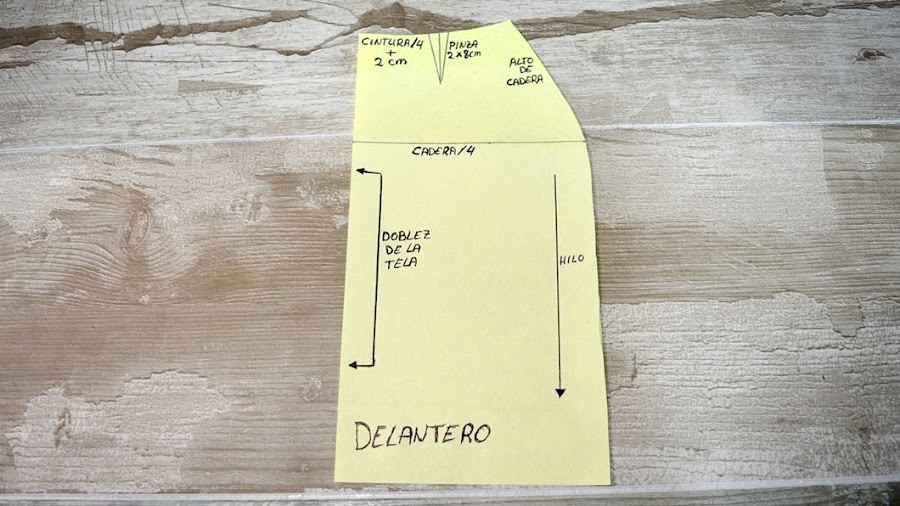 CINTURA/4
+
2 cm
PINZA
2x8cm
ALTO
DE
CADERA
CADERA/4
DOBLEZ
DE LA
TELA
HILO
DELANTERO